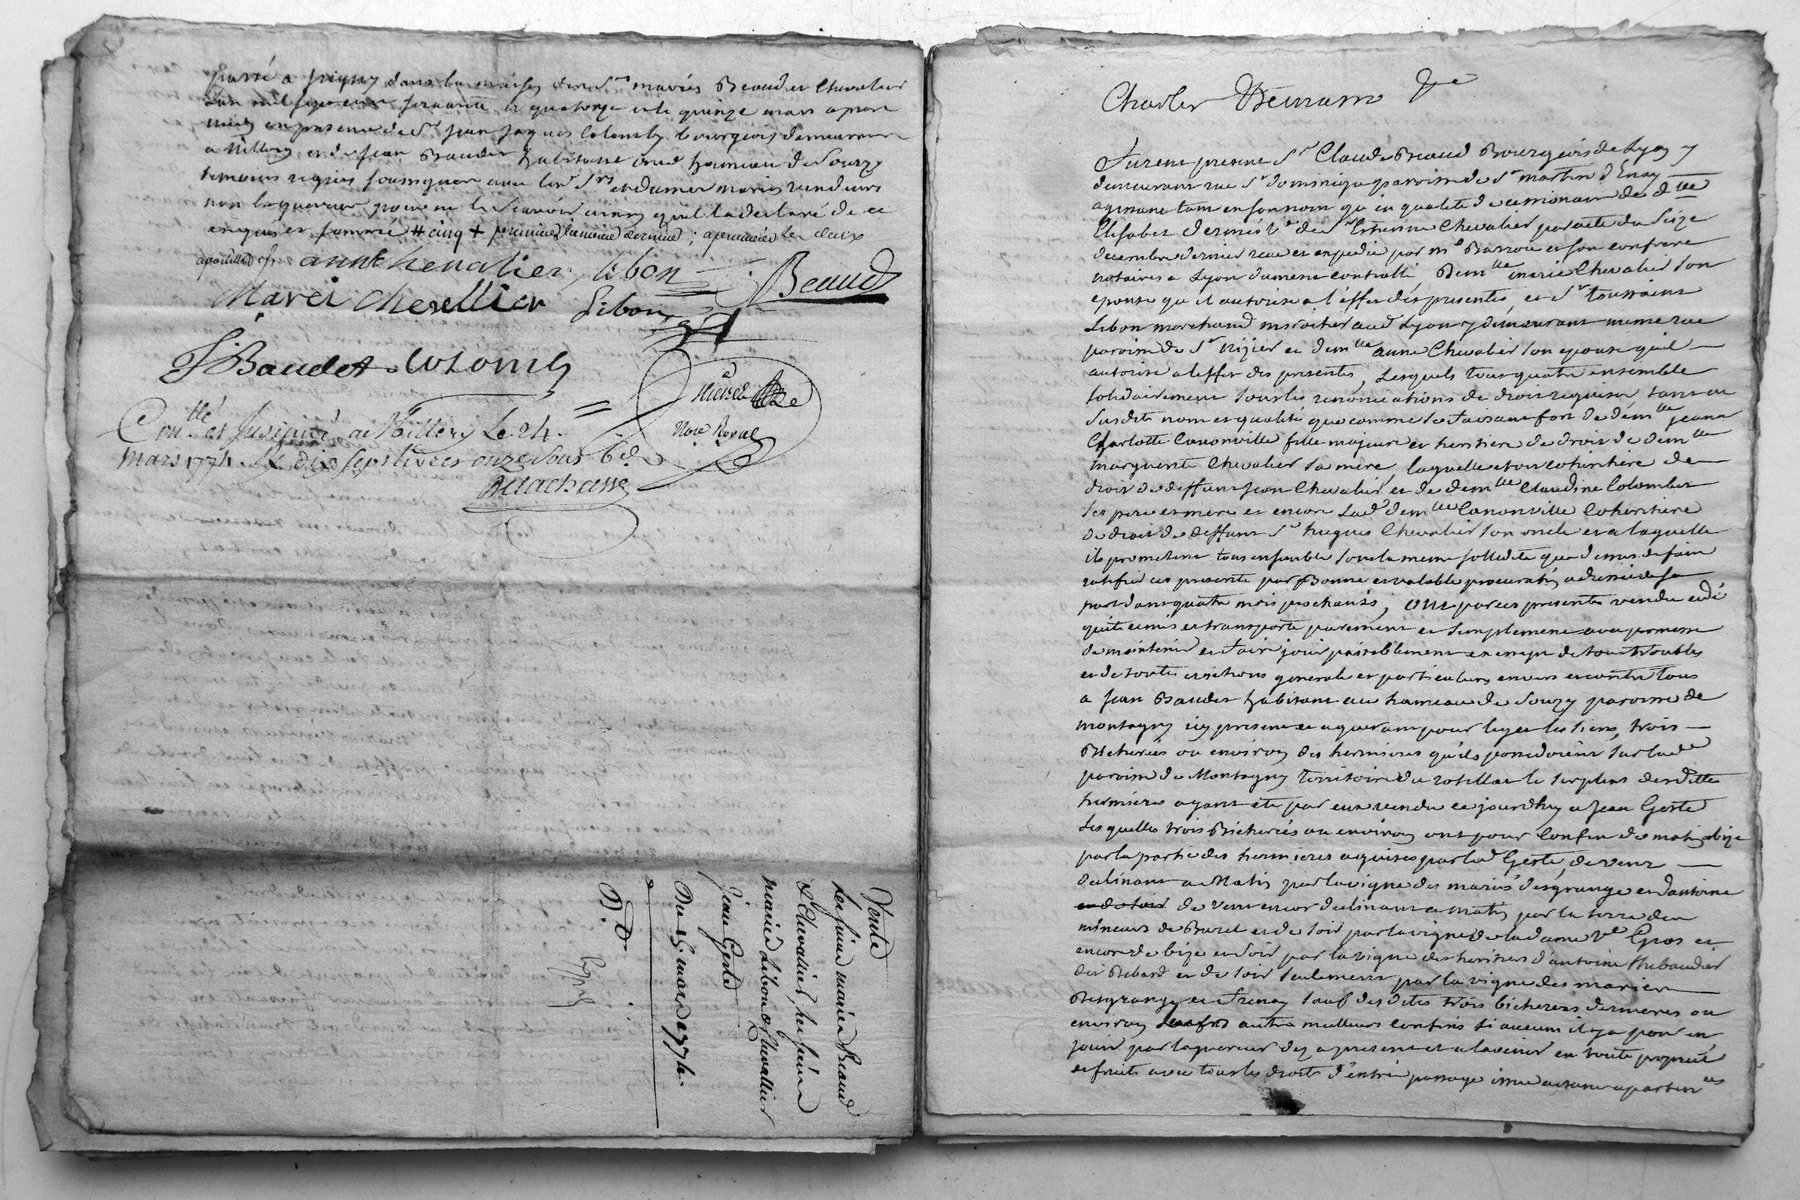 passé a Irigny dans la maison des Sr mariés Beaud et Chevalier
l'an mil sept cent soixante et quatorze et le quinze mars apres
midy en presence de Sr jean jaques Colomb bourgeois demeurant
a Millery et de jean Baudet habitant aud hameau de Sourzy
temoins requis soussignés avec lesd Srs et dames mariés vendeurs
non l'aquereur pour ne le scavoir ainsy qu'il l'a declaré de ce
enquis et sommé
anne chevalier, libon
Beaud
Marei chevellier Libon
J Baudet Colomb
Note Royal
Contllé et Insinué a Millery le 24
mars 1774. Rx dix sept livres onze sous 6d
Vente
les sieur mariés Beaud
& Chavalier, les sieur
mariés Libon & Chavallier
Jean Geste
Du 15 mars 1774.
Charles
Furent presents Sr Claude Beaud Bourgeois de Lyon y
demeurant rue St dominique paroisse de St martin d'Enay
agissant tant en son nom qu'en qualité de cessionnaire de dlle
Elisabet dermés Ve de Sr Estienne Chevalier par acte du seize
decembre dernier receu et expedié par me Barrou et son confrere
notaires a Lyon duement controllé, demlle marie Chevalier son
epouse qu'il autorise a l'effet des presentes, et Sr toussaint
Libon marchand aud Lyon y demeurant meme rue
paroisse de St nizier et demlle anne Chevalier son epouse qu'il
autorise a l'effet des presentes, Lesquels tous quatre ensemble
solidairement sous les renonciations de droit requises tant au
susdit nom et qualité que comme se faisant fort de demlle jeanne
Charlotte Canonville fille majeure et heritiere de droit de demlle
marguerite Chevalier sa mere laquelle etoit cohéritiere de
droit de deffunt Jean Chevalier et de demlle Claudine Colombet
ses pere et mere et encore lad demlle Canonville Coheritiere
de droit de deffunt Sr hugues Chevalier son oncle et a laquelle
ils promettent tous ensemble sous la meme sollidité que dessus de faire
ratifier ces presentes par Bonne et valable procuration
dans quatre mois prochains, ont par ces presentes vendu cedé
quitté remis et transporté purement et simplement avec promesse
de maintenir et faire jouir paisiblement exempt de tous troubles
et de toutes evictions generales et particulieres envers et contre tous
a Jean Baudet habitant au hameau de Sourzy paroisse de
montagny icy present et aquerant pour luy et les siens, trois
Bicherées ou environ des hermieres qu'ils possedoient sur lade
paroisse de Montagny territoire du rotillac le surplus desdittes
hermieres ayant eté par eux vendu ce jourdhuy a Jean Geste
Lesquelles trois Bicherées ou environ ont pour Confin de matin et bize
par la partie des hermieres aquises par led Geste, de vent
declinant a Matin par la vigne des mariés desgrange et d'antoine
de vent encor declinant a matin par la terre des
mineurs de Buret et de soir par la vigne de la dame Ve Gros et
encor de bize et soir par la vigne des heritiers d'antoine thibaudier
dit Bebard et de soir seulement par la vigne des mariés
Desgrange et Frenay sauf desdites trois bicherées hermieres ou
environ autres meilleurs confins si aucuns il y a pour en
jouir par l'aquereur dez a present et a l'avenir en toute proprieté
et fruits avec tous les droits d'entrée passage issue aisances apartences